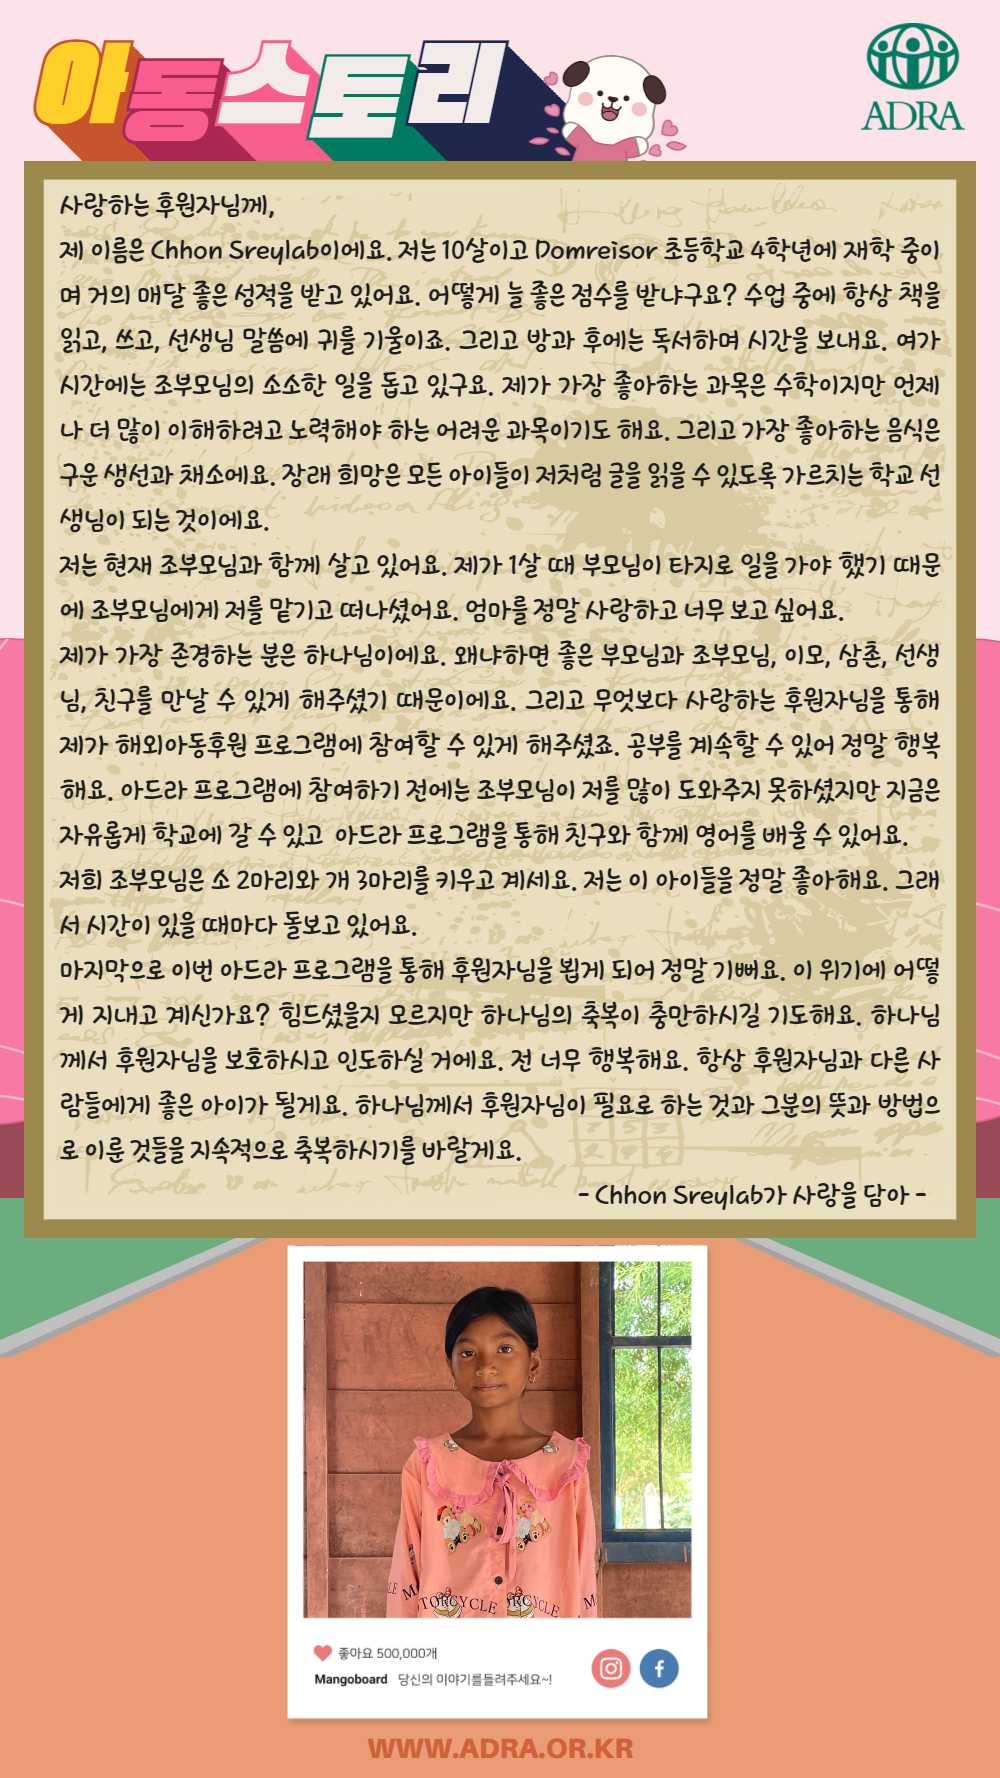 아동스토리
ADRA
사랑하는 후원자님께,
제 이름은 Chhon Sreylab이에요. 저는 10살이고 Domreisor 초등학교 4학년에 재학 중이
며 거의 매달 좋은 성적을 받고 있어요. 어떻게 늘 좋은 점수를 받냐구요? 수업 중에 항상 책을
읽고, 쓰고, 선생님 말씀에 귀를 기울이죠. 그리고 방과 후에는 독서하며 시간을 보내요. 여가
시간에는 조부모님의 소소한 일을 돕고 있구요. 제가 가장 좋아하는 과목은 수학이지만 언제
나 더 많이 이해하려고 노력해야 하는 어려운 과목이기도 해요. 그리고 가장 좋아하는 음식은
구운 생선과 채소에요. 장래 희망은 모든 아이들이 저처럼 글을 읽을 수 있도록 가르치는 학교 선
생님이 되는 것이에요.
저는 현재 조부모님과 함께 살고 있어요. 제가 1살 때 부모님이 타지로 일을 가야 했기 때문
에 조부모님에게 저를 맡기고 떠나셨어요. 엄마를 정말 사랑하고 너무 보고 싶어요.
제가 가장 존경하는 분은 하나님이에요. 왜냐하면 좋은 부모님과 조부모님, 이모, 삼촌, 선생
님, 친구를 만날 수 있게 해주셨기 때문이에요. 그리고 무엇보다 사랑하는 후원자님을 통해
제가 해외아동후원 프로그램에 참여할 수 있게 해주셨죠. 공부를 계속할 수 있어 정말 행복
해요. 아드라 프로그램에 참여하기 전에는 조부모님이 저를 많이 도와주지 못하셨지만 지금은
자유롭게 학교에 갈 수 있고 아드라 프로그램을 통해 친구와 함께 영어를 배울 수 있어요.
저희 조부모님은 소 2마리와 개 3마리를 키우고 계세요. 저는 이 아이들을 정말 좋아해요. 그래
서 시간이 있을 때마다 돌보고 있어요.
마지막으로 이번 아드라 프로그램을 통해 후원자님을 뵙게 되어 정말 기뻐요. 이 위기에 어떻
게 지내고 계신가요? 힘드셨을지 모르지만 하나님의 축복이 충만하시길 기도해요. 하나님
께서 후원자님을 보호하시고 인도하실 거에요. 전 너무 행복해요. 항상 후원자님과 다른 사
람들에게 좋은 아이가 될게요. 하나님께서 후원자님이 필요로 하는 것과 그분의 뜻과 방법으
로 이룬 것들을 지속적으로 축복하시기를 바랄게요.
- Chhon Sreylab가 사랑을 담아 -
MOTORCYCLE
좋아요 500,000개
Mangoboard 당신의 이야기를들려주세요~!
WWW.ADRA.OR.KR